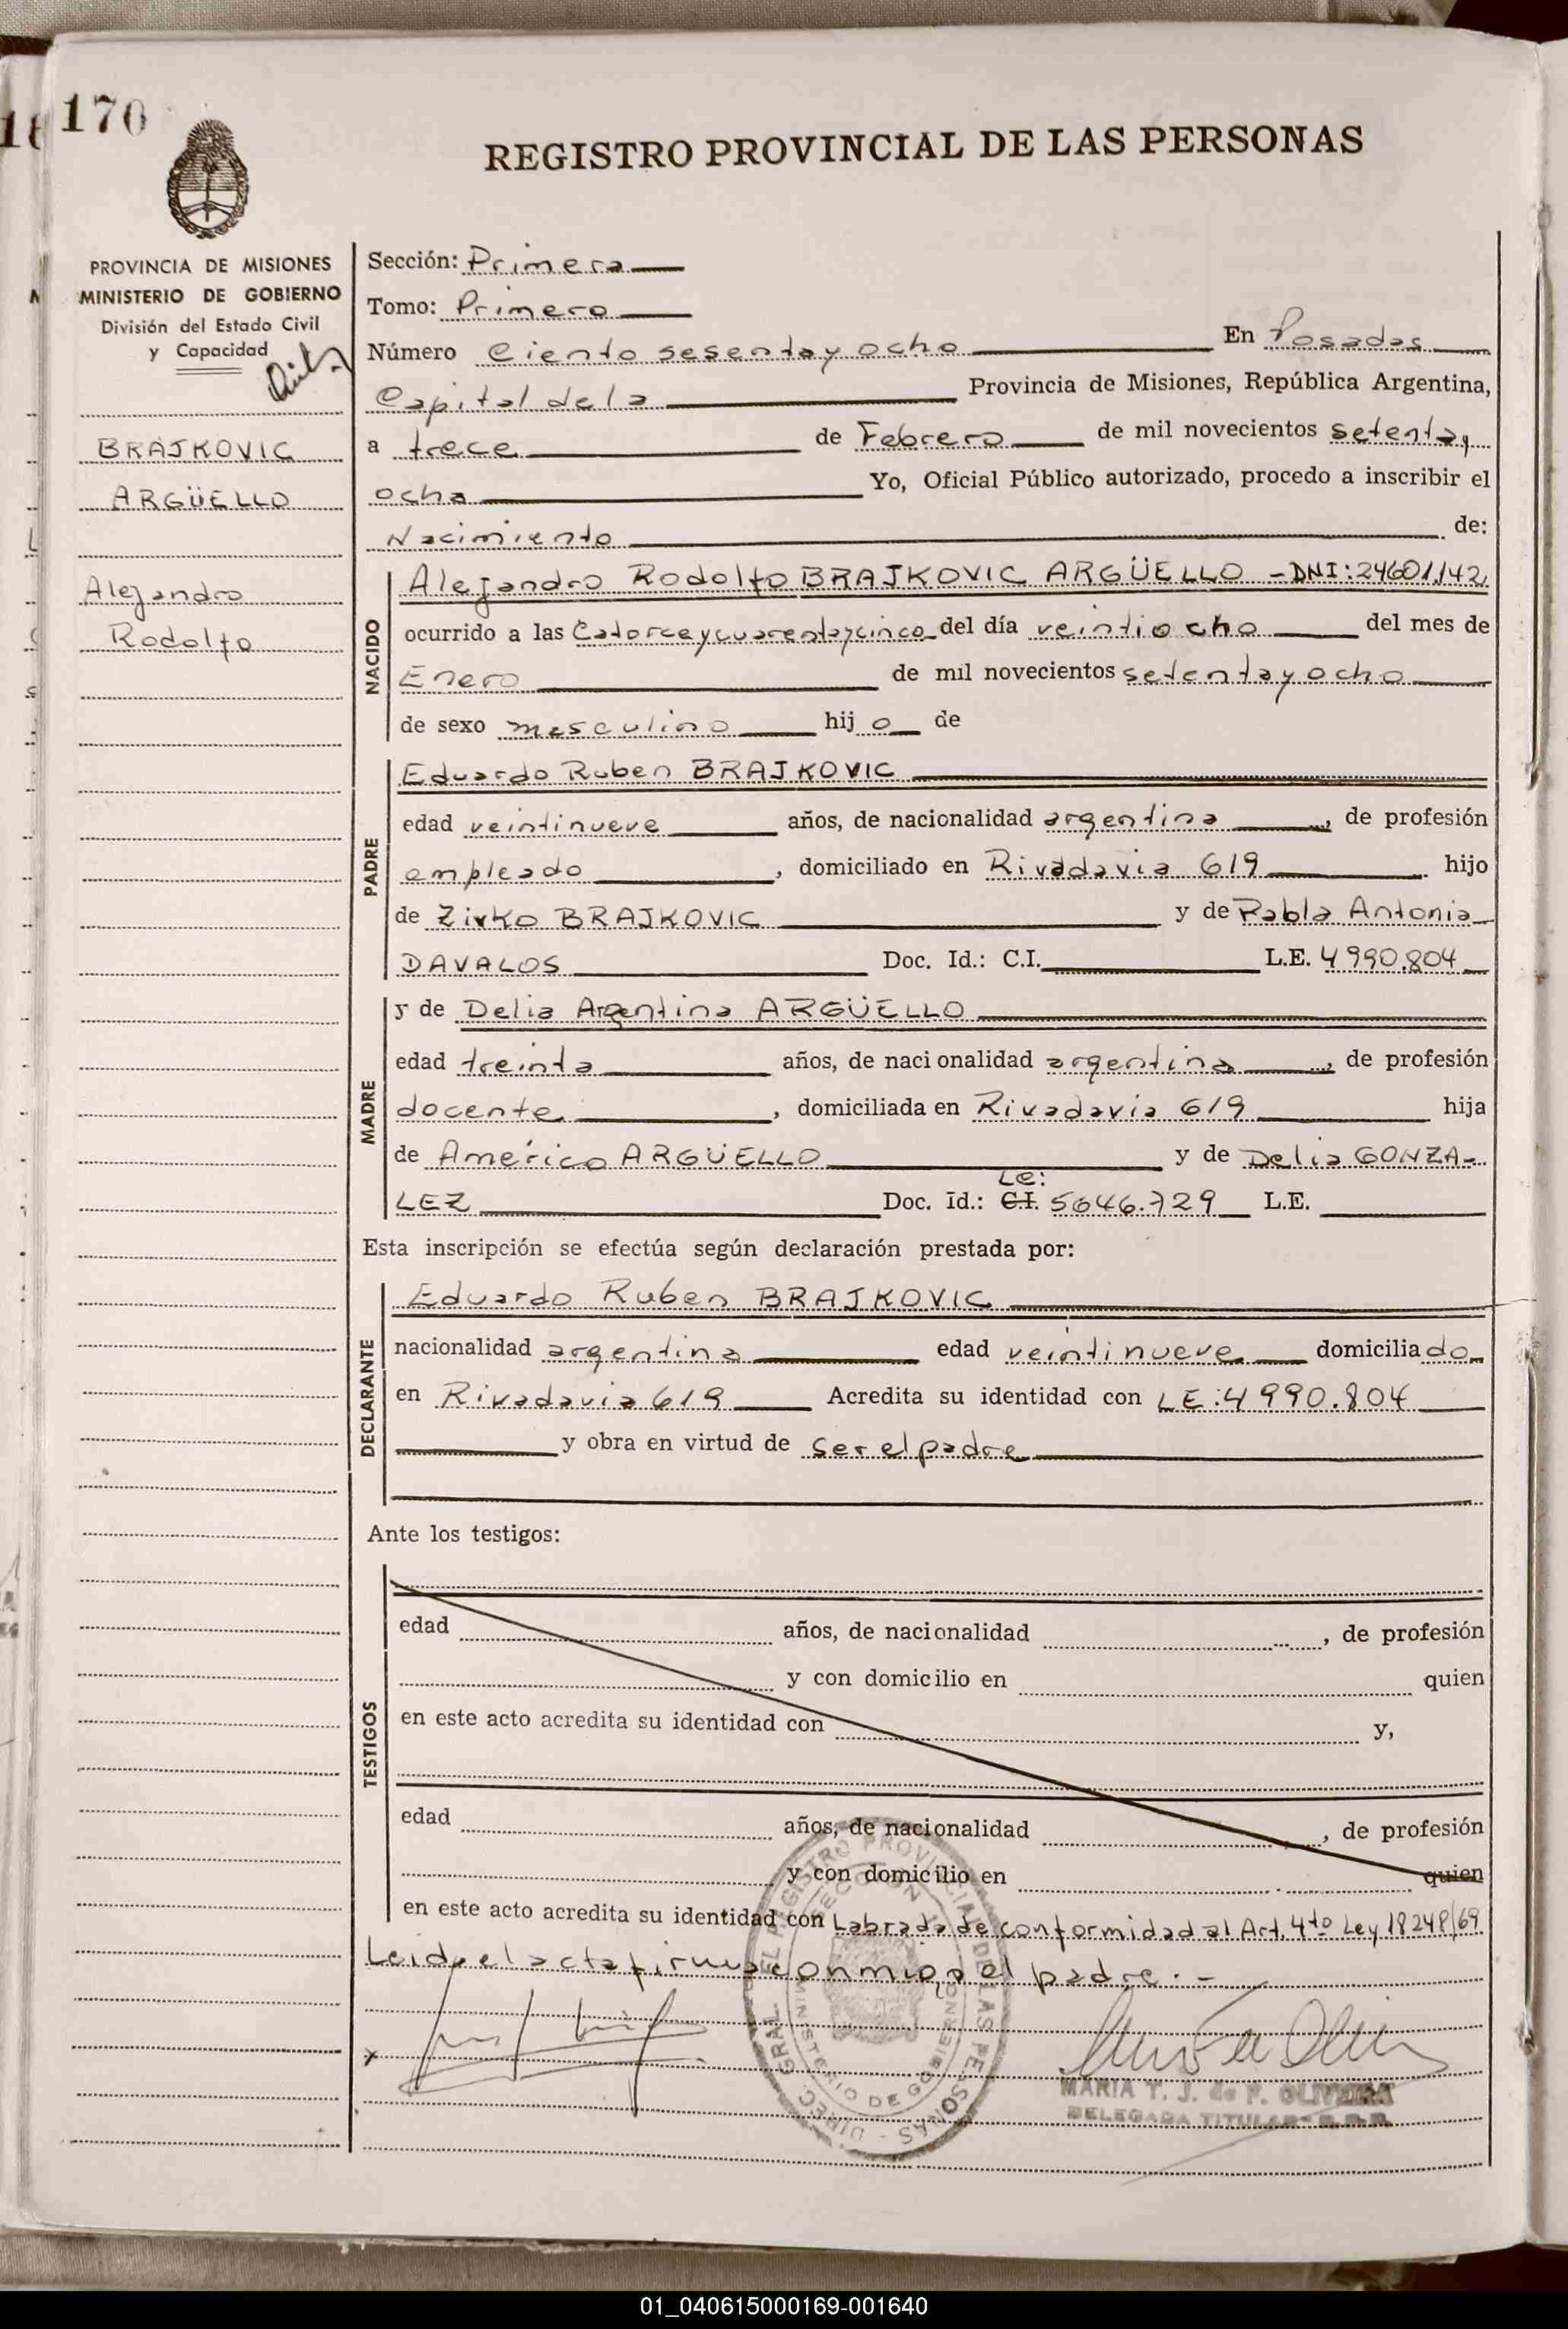 170
REGISTRO PROVINCIAL DE LAS PERSONAS
PROVINCIA DE MISIONES
MINISTERIO DE GOBIERNO
División del Estado Civil
y Capacidad
BRAJKOVIC
ARGÜELLO
Alejandro
Rodolfo
Sección: Primera
Tomo: Primero
Número Ciento sesenta y ocho En Posadas
Capital de la Provincia de Misiones, República Argentina,
a trece de Febrero de mil novecientos setenta y
ocho Yo, Oficial Público autorizado, procedo a inscribir el
Nacimiento de:
NACIDO
Alejandro Rodolfo BRAJKOVIC ARGÜELLO - DNI: 24601.142.
ocurrido a las Catorce y cuarenta y cinco del día veintiocho del mes de
Enero de mil novecientos setenta y ocho
de sexo masculino hijo de
PADRE
Eduardo Ruben BRAJKOVIC
edad veintinueve años, de nacionalidad argentina, de profesión
empleado, domiciliado en Rivadavia 619 hijo
de Zivko BRAJKOVIC y de Pabla Antonia
DAVALOS Doc. Id.: C.I. L.E. 4990.804
MADRE
y de Delia Argentina ARGÜELLO
edad treinta años, de nacionalidad argentina, de profesión
docente, domiciliada en Rivadavia 619 hija
de Américo ARGÜELLO y de Delia GONZA-
LEZ Doc. Id.: C.I. Le: 5646.729 L.E.
Esta inscripción se efectúa según declaración prestada por:
DECLARANTE
Eduardo Ruben BRAJKOVIC
nacionalidad argentina edad veintinueve domiciliado
en Rivadavia 619 Acredita su identidad con LE: 4990.804
y obra en virtud de ser el padre
Ante los testigos:
TESTIGOS
edad años, de nacionalidad , de profesión
y con domicilio en quien
en este acto acredita su identidad con y,
edad años, de nacionalidad , de profesión
y con domicilio en quien
en este acto acredita su identidad con Labrada de conformidad al Art. 4to Ley 18248/69
Leida el acta firma conmigo el padre. -
DIREC. GRAL. EL REGISTRO PROVINCIAL DE LAS PERSONAS
SECCION
MINISTERIO DE GOBIERNO
MARIA T. J. de F. OLIVEIRA
DELEGADA TITULAR
01_040615000169-001640